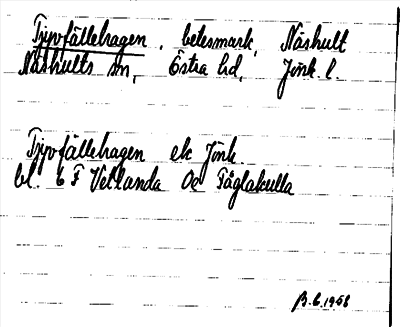 Tjyvfällehagen, betesmark, Näshult
Näshults sn, Östra hd, Jönk. l.
Tjyvfällehagen ek Jönk.
bl. 6 F Vetlanda Oc Fåglakulla
B.G. 1966